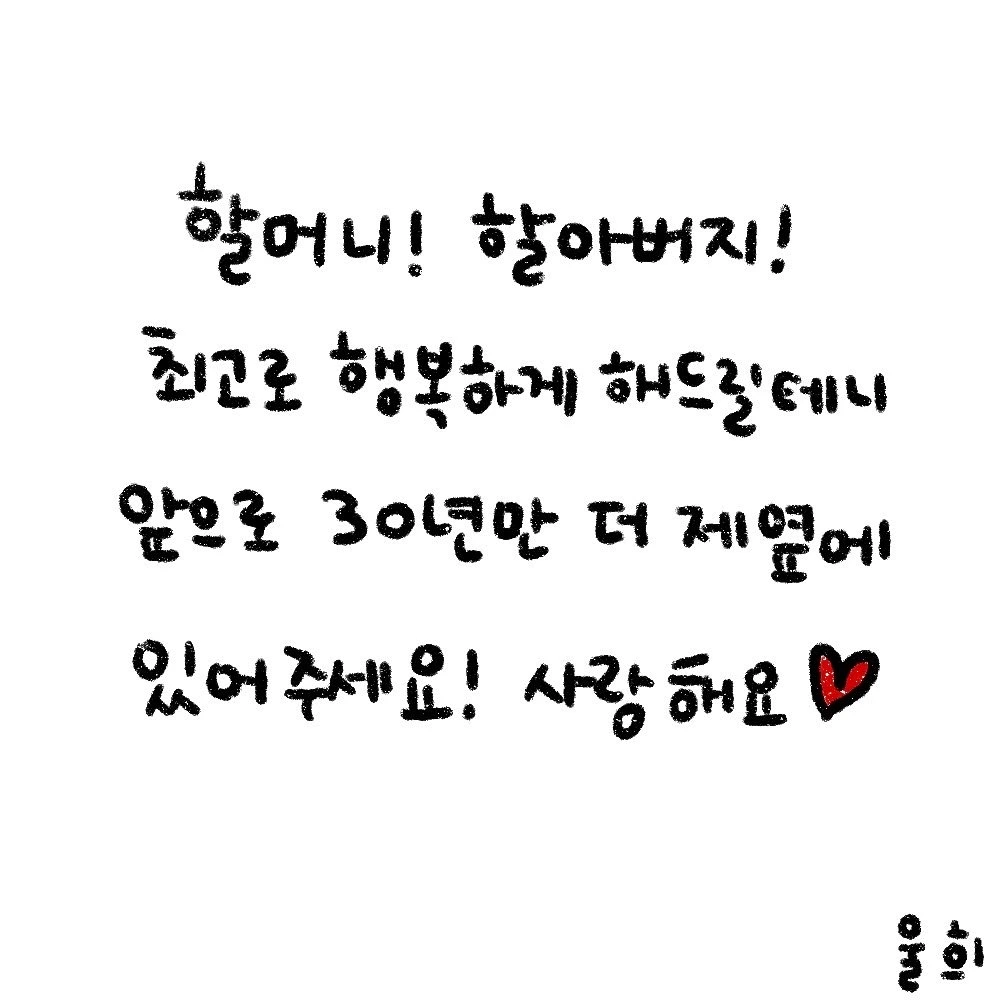 할머니! 할아버지!
최고로 행복하게 해드릴테니
앞으로 30년만 더 제옆에
있어주세요! 사랑해요
율희